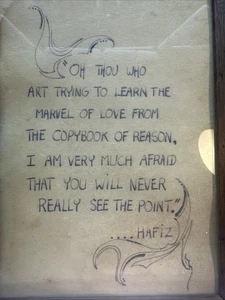 "OH THOU WHO
ART TRYING TO LEARN THE
MARVEL OF LOVE FROM
THE COPYBOOK OF REASON,
I AM VERY MUCH AFRAID
THAT YOU WILL NEVER
REALLY SEE THE POINT."
....HAFIZ